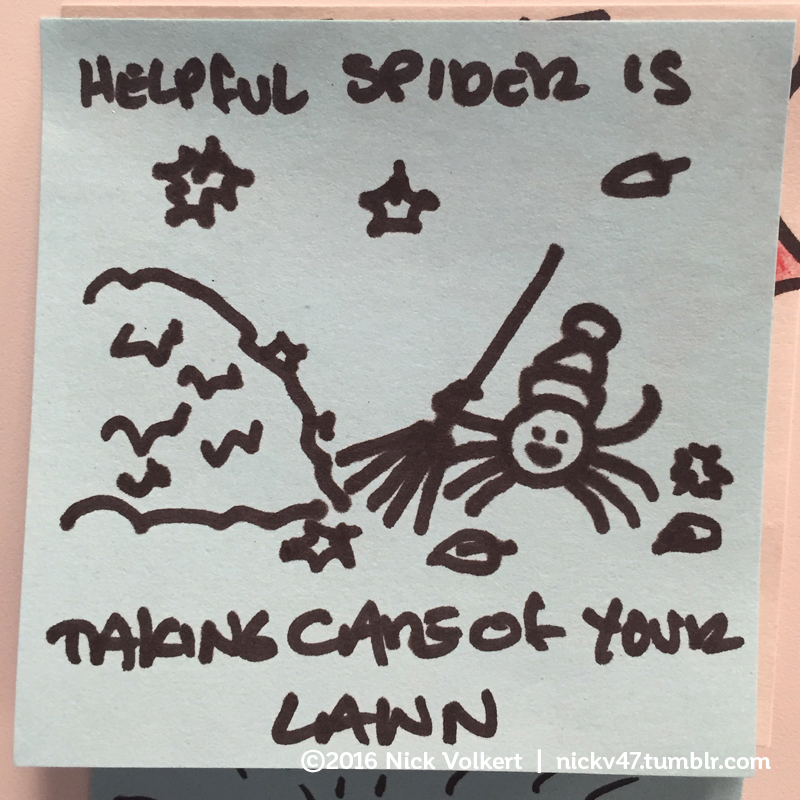 HELPFUL SPIDER IS
TAKING CARE OF YOUR
LAWN
©2016 Nick Volkert | nickv47.tumblr.com